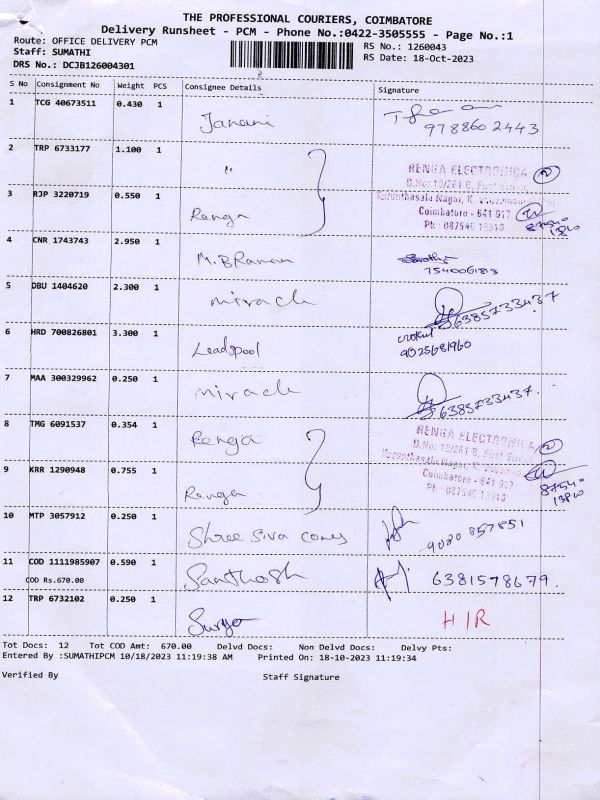 THE PROFESSIONAL COURIERS, COIMBATORE
Delivery Runsheet - PCM - Phone No.:0422-3505555 - Page No.:1
Route: OFFICE DELIVERY PCM RS No.: 1260043
Staff: SUMATHI RS Date: 18-Oct-2023
DRS No.: DCJB126004301
S No Consignment No Weight PCS Consignee Details Signature
1 TCG 40673511 0.430 1 Janani
9788602443
2 TRP 6733177 1.100 1 "
RENGA ELECTRONICA 2
3 RJP 3220719 0.550 1 Renga
Coimbatore - 641 017
4 CNR 1743743 2.950 1 M.B Raman
7540061813
5 DBU 1404620 2.300 1 miracle
6385733437
6 HRD 700826801 3.300 1 Leadspool
9025681960
7 MAA 300329962 0.250 1 miracle
6385733437.
8 TMG 6091537 0.354 1 Renga
RENGA ELECTRONICA 2
9 KRR 1290948 0.755 1 Renga
Coimbatore - 641 017
10 MTP 3057912 0.250 1 Shree Siva Conys
9020857851
11 COD 1111985907 0.590 1 Santhosh 6381578679.
COD Rs.670.00
12 TRP 6732102 0.250 1 Surya H/R
Tot Docs: 12 Tot COD Amt: 670.00 Delvd Docs: Non Delvd Docs: Delvy Pts:
Entered By :SUMATHIPCM 10/18/2023 11:19:38 AM Printed On: 18-10-2023 11:19:34
Verified By Staff Signature